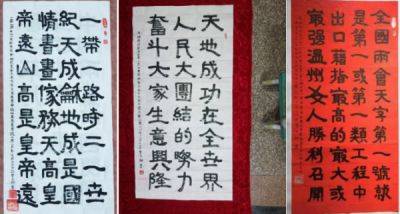 一帶一路時二一世
紀天成龢地成是國
情書畫傢務天高皇
帝遠山高是皇帝遠
天地成功在全世界
人民大團結的努力
奮斗大家生意興隆
全國兩會天字第一號就
是第一或第一類工程中
出口藉指最高的最大或
最强溫州女人勝利召開